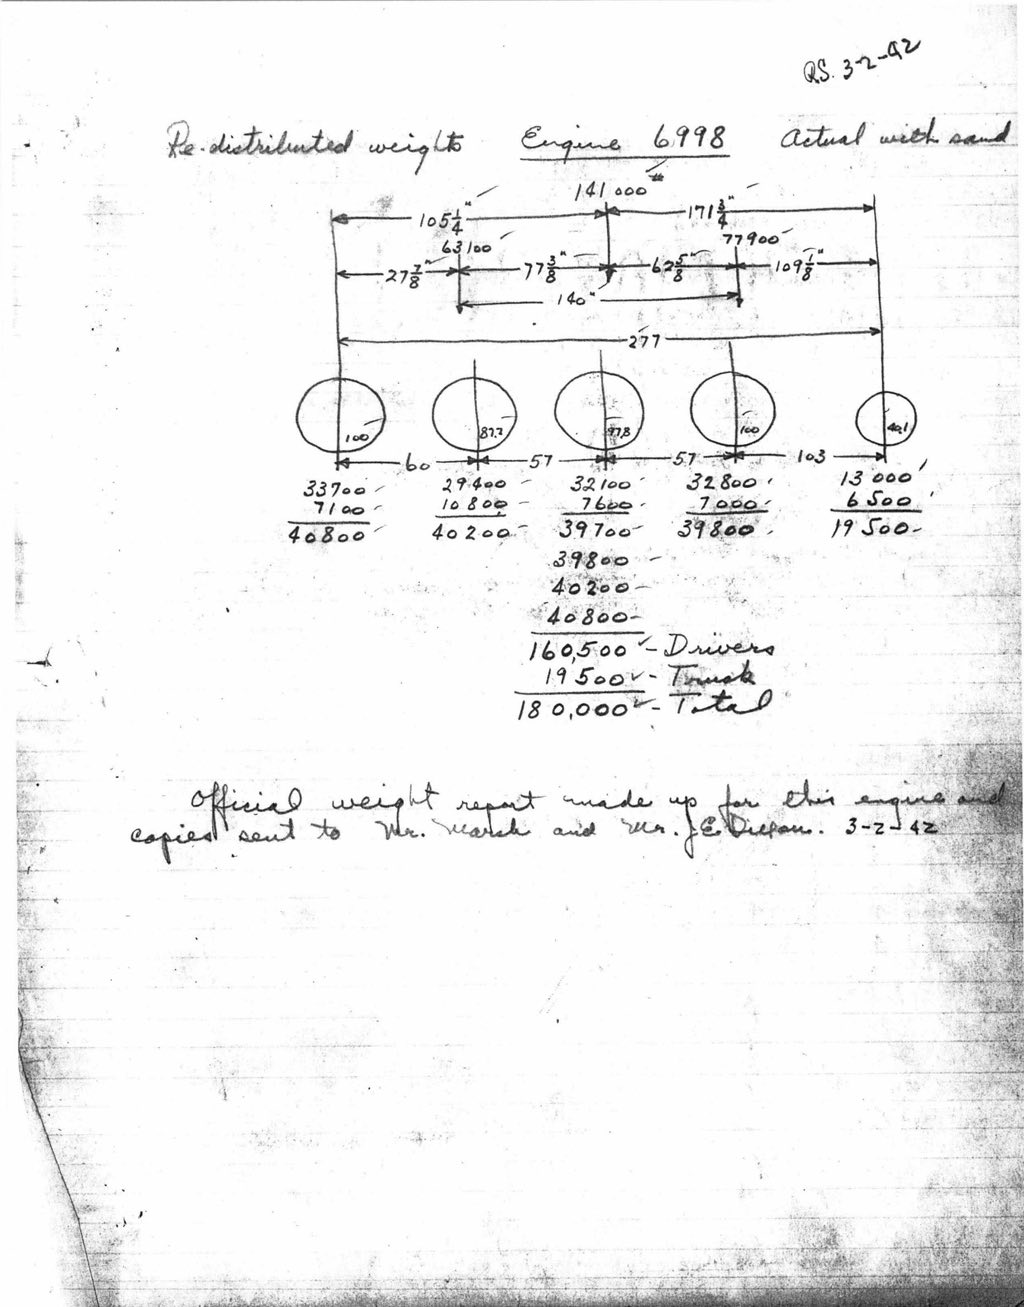 RS. 3-2-42
Re-distributed weights Engine 6998 Actual with sand
141 000#
105 1/4" 171 3/4"
63100 77900
27 7/8" 77 3/8" 62 5/8" 109 1/8"
140"
277
100 87.2 97.8 100 40.1
60 57 57 103
33700 29400 32100 32800 13 000
7100 10 800 7600 7 000 6 500
40800 40 200 39700 39800 19 500
39800
40200
40800
160,500 - Drivers
19 500 - Truck
180,000 - Total
Official weight report made up for this engine and
copies sent to Mr. Marsh and Mr. J E Dillon. 3-2-42